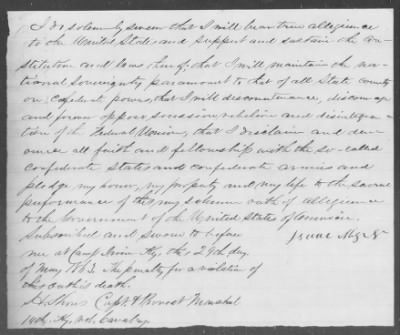 I do solemnly swear that I will bear true allegiance
to the United States and support and sustain the Con
stitution and laws thereof, that I will maintain the na
tional Sovereignty paramount to that of all State County
or powers, that I will discountenance, discourage
and forever oppose secession rebelion and disintegra
tion of the Federal Union, that I disclaim and den
ounce all faith and fellowship with the so-called
Confederate States and Confederate armies and
pledge my honor, my property and my life to the sacred
performance of this my solemn oath of allegiance
to the Government of the United States of America.
Subscribed and sworn to before
Isaac
me at Camp Ky. this 29th day
of May 1863. The penalty for a violation of
this oath is death.
Capt & Provost Marshal
14th Ky. Vol. Cavalry